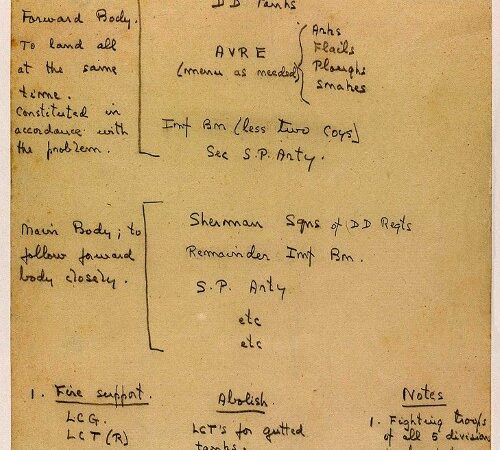 DD Tanks
Forward Body.
To land all
at the same
time.
Constituted in
accordance with
the problem.
AVRE
(menu as needed)
Arks
Flails
Ploughs
Snakes
Inf Bn (less two Coys)
Sec S.P. Arty.
Main Body; to
follow forward
body closely.
Sherman Sqns of DD Regts
Remainder Inf Bn.
S.P. Arty
etc
etc
1. Fire support.
LCG.
LCT (R)
Abolish.
LCT's for gutted
tanks.
Notes
1. Fighting troops
of all 5 divisions